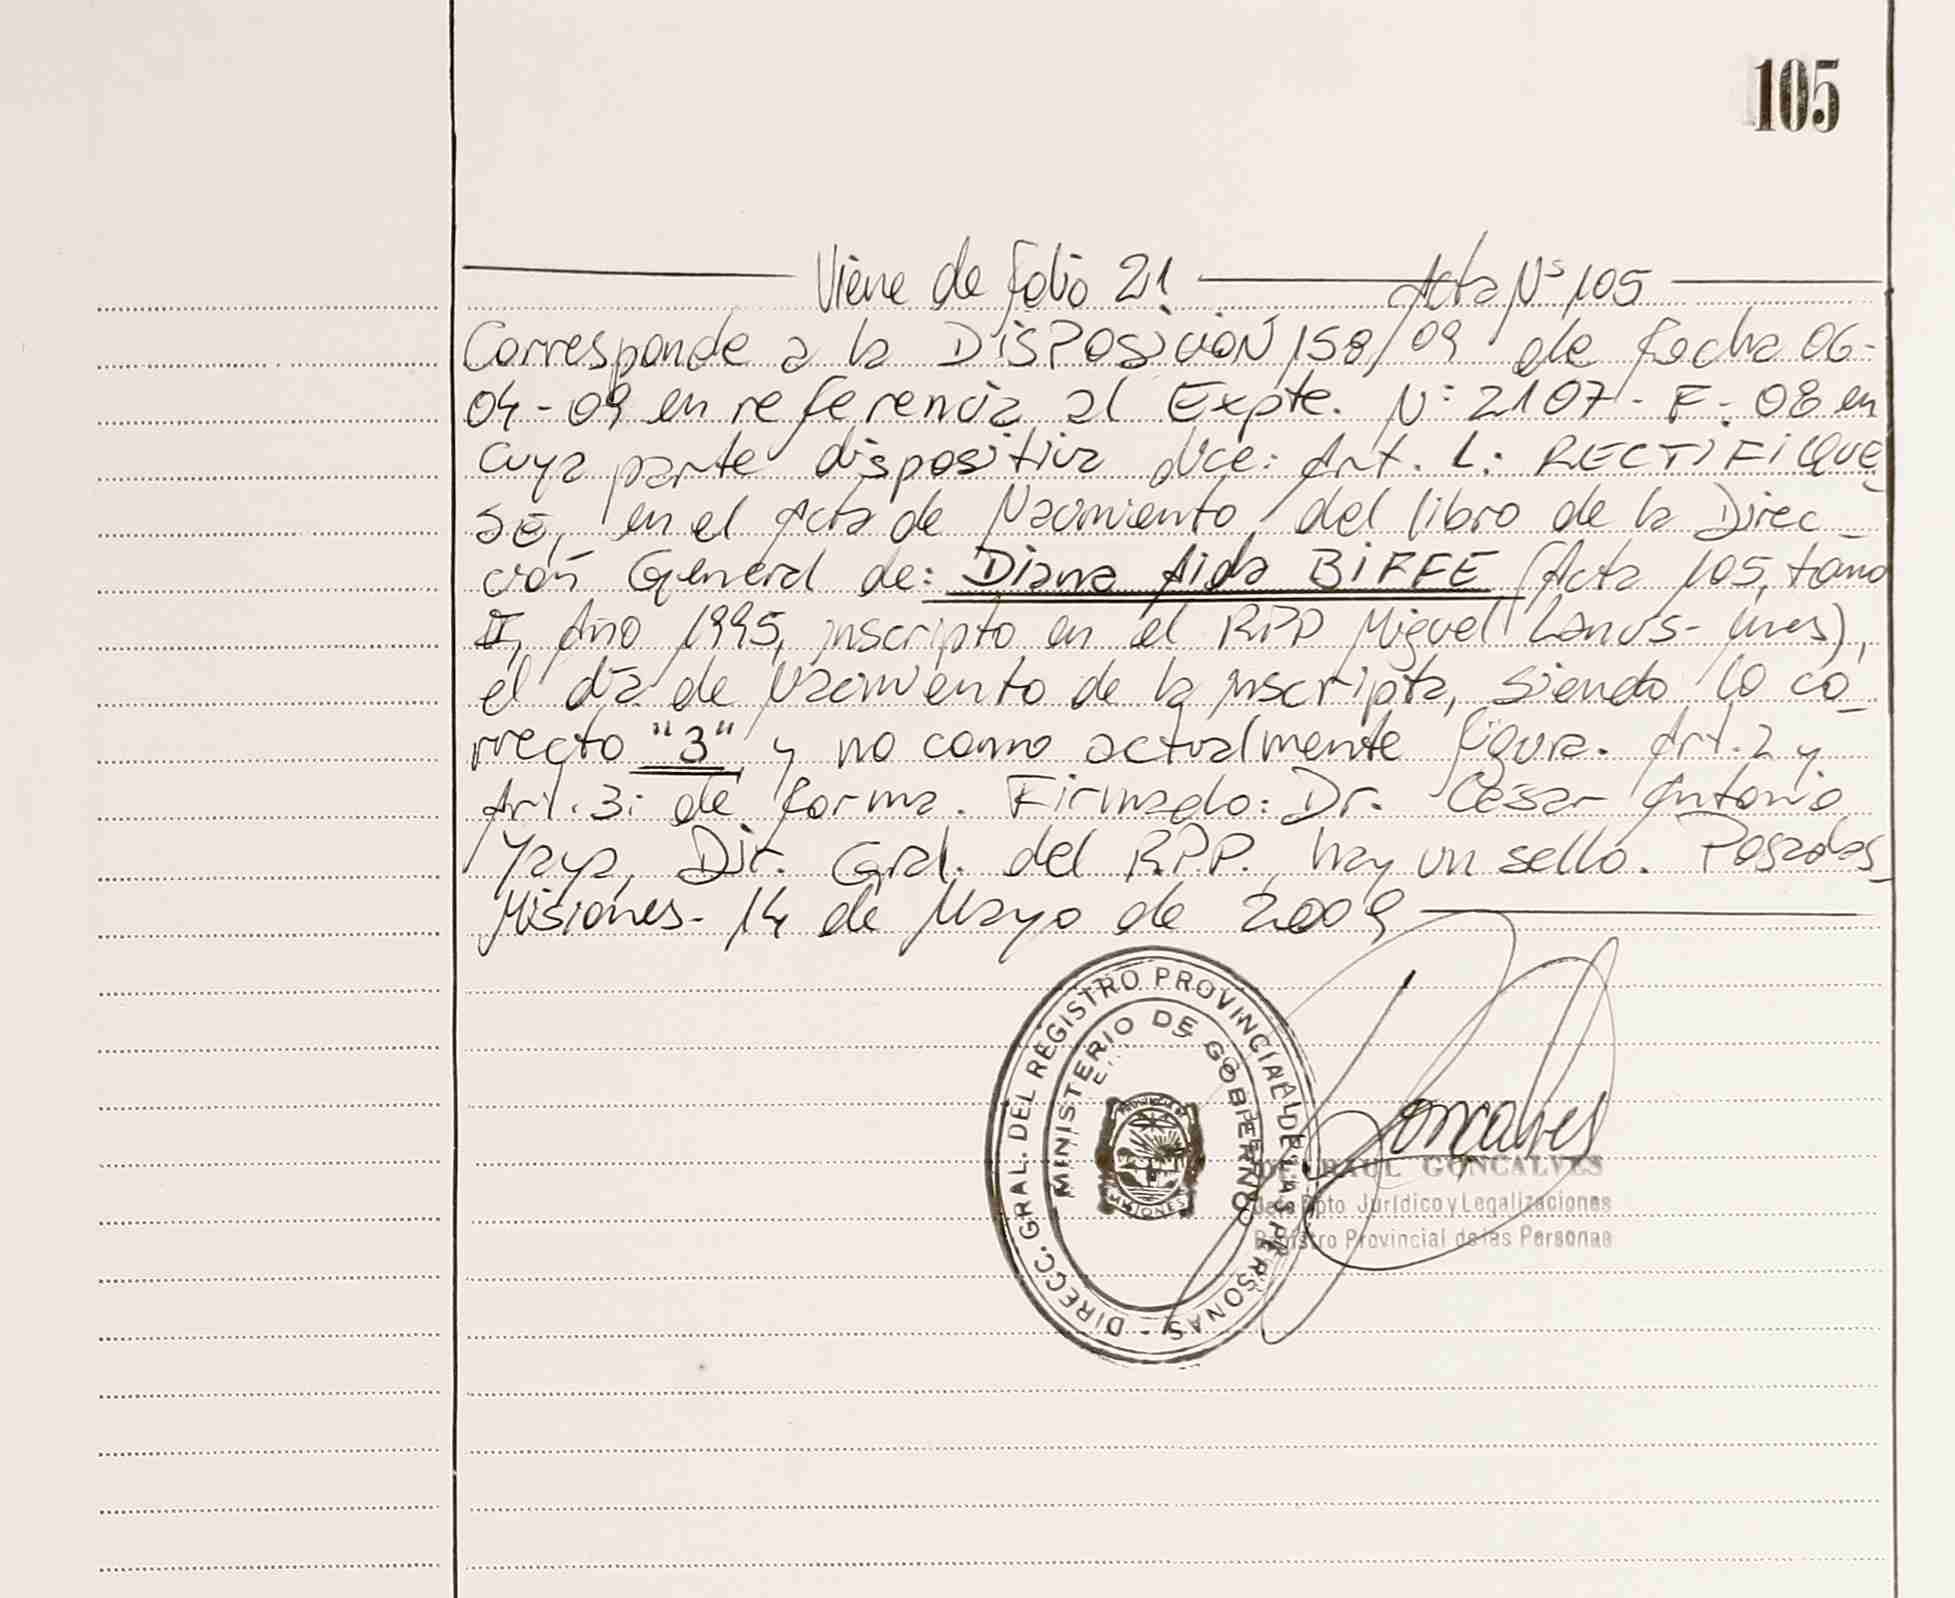 105
Viene de folio 21 Acta Nº 105
Corresponde a la DISPOSICION 158/09 de fecha 06-
04-09 en referencia al Expte. Nº 2107-F-08 en
cuya parte dispositiva dice: Art. 1: RECTIFIQUE
SE, en el Acta de Nacimiento del libro de la Direc_
ción General de: Diana Aida BIFFE (Acta 105, tomo
II, Año 1995, inscripto en el RPP Miguel Lanus-Mnes),
el día de Nacimiento de la inscripta, siendo lo co_
rrecto "3" y no como actualmente figura. Art. 2 y
Art. 3: de forma. Firmado: Dr. Cesar Antonio
Yaya, Dir. Gral. del R.P.P. hay un sello. Posadas_
Misiones- 14 de Mayo de 2009
DIRECC. GRAL. DEL REGISTRO PROVINCIAL DE LAS PERSONAS -
MINISTERIO DE GOBIERNO
PROVINCIA DE
MISIONES
Goncalves
RAUL GONCALVES
Jefe Dpto Jurídico y Legalizaciones
Registro Provincial de las Personas